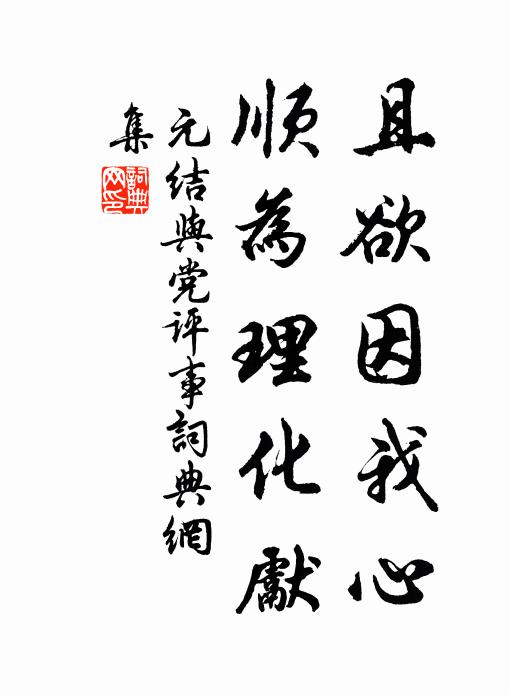 且欲因我心
順為理化獻
元结與党评事詞典網
集
詞典
网印